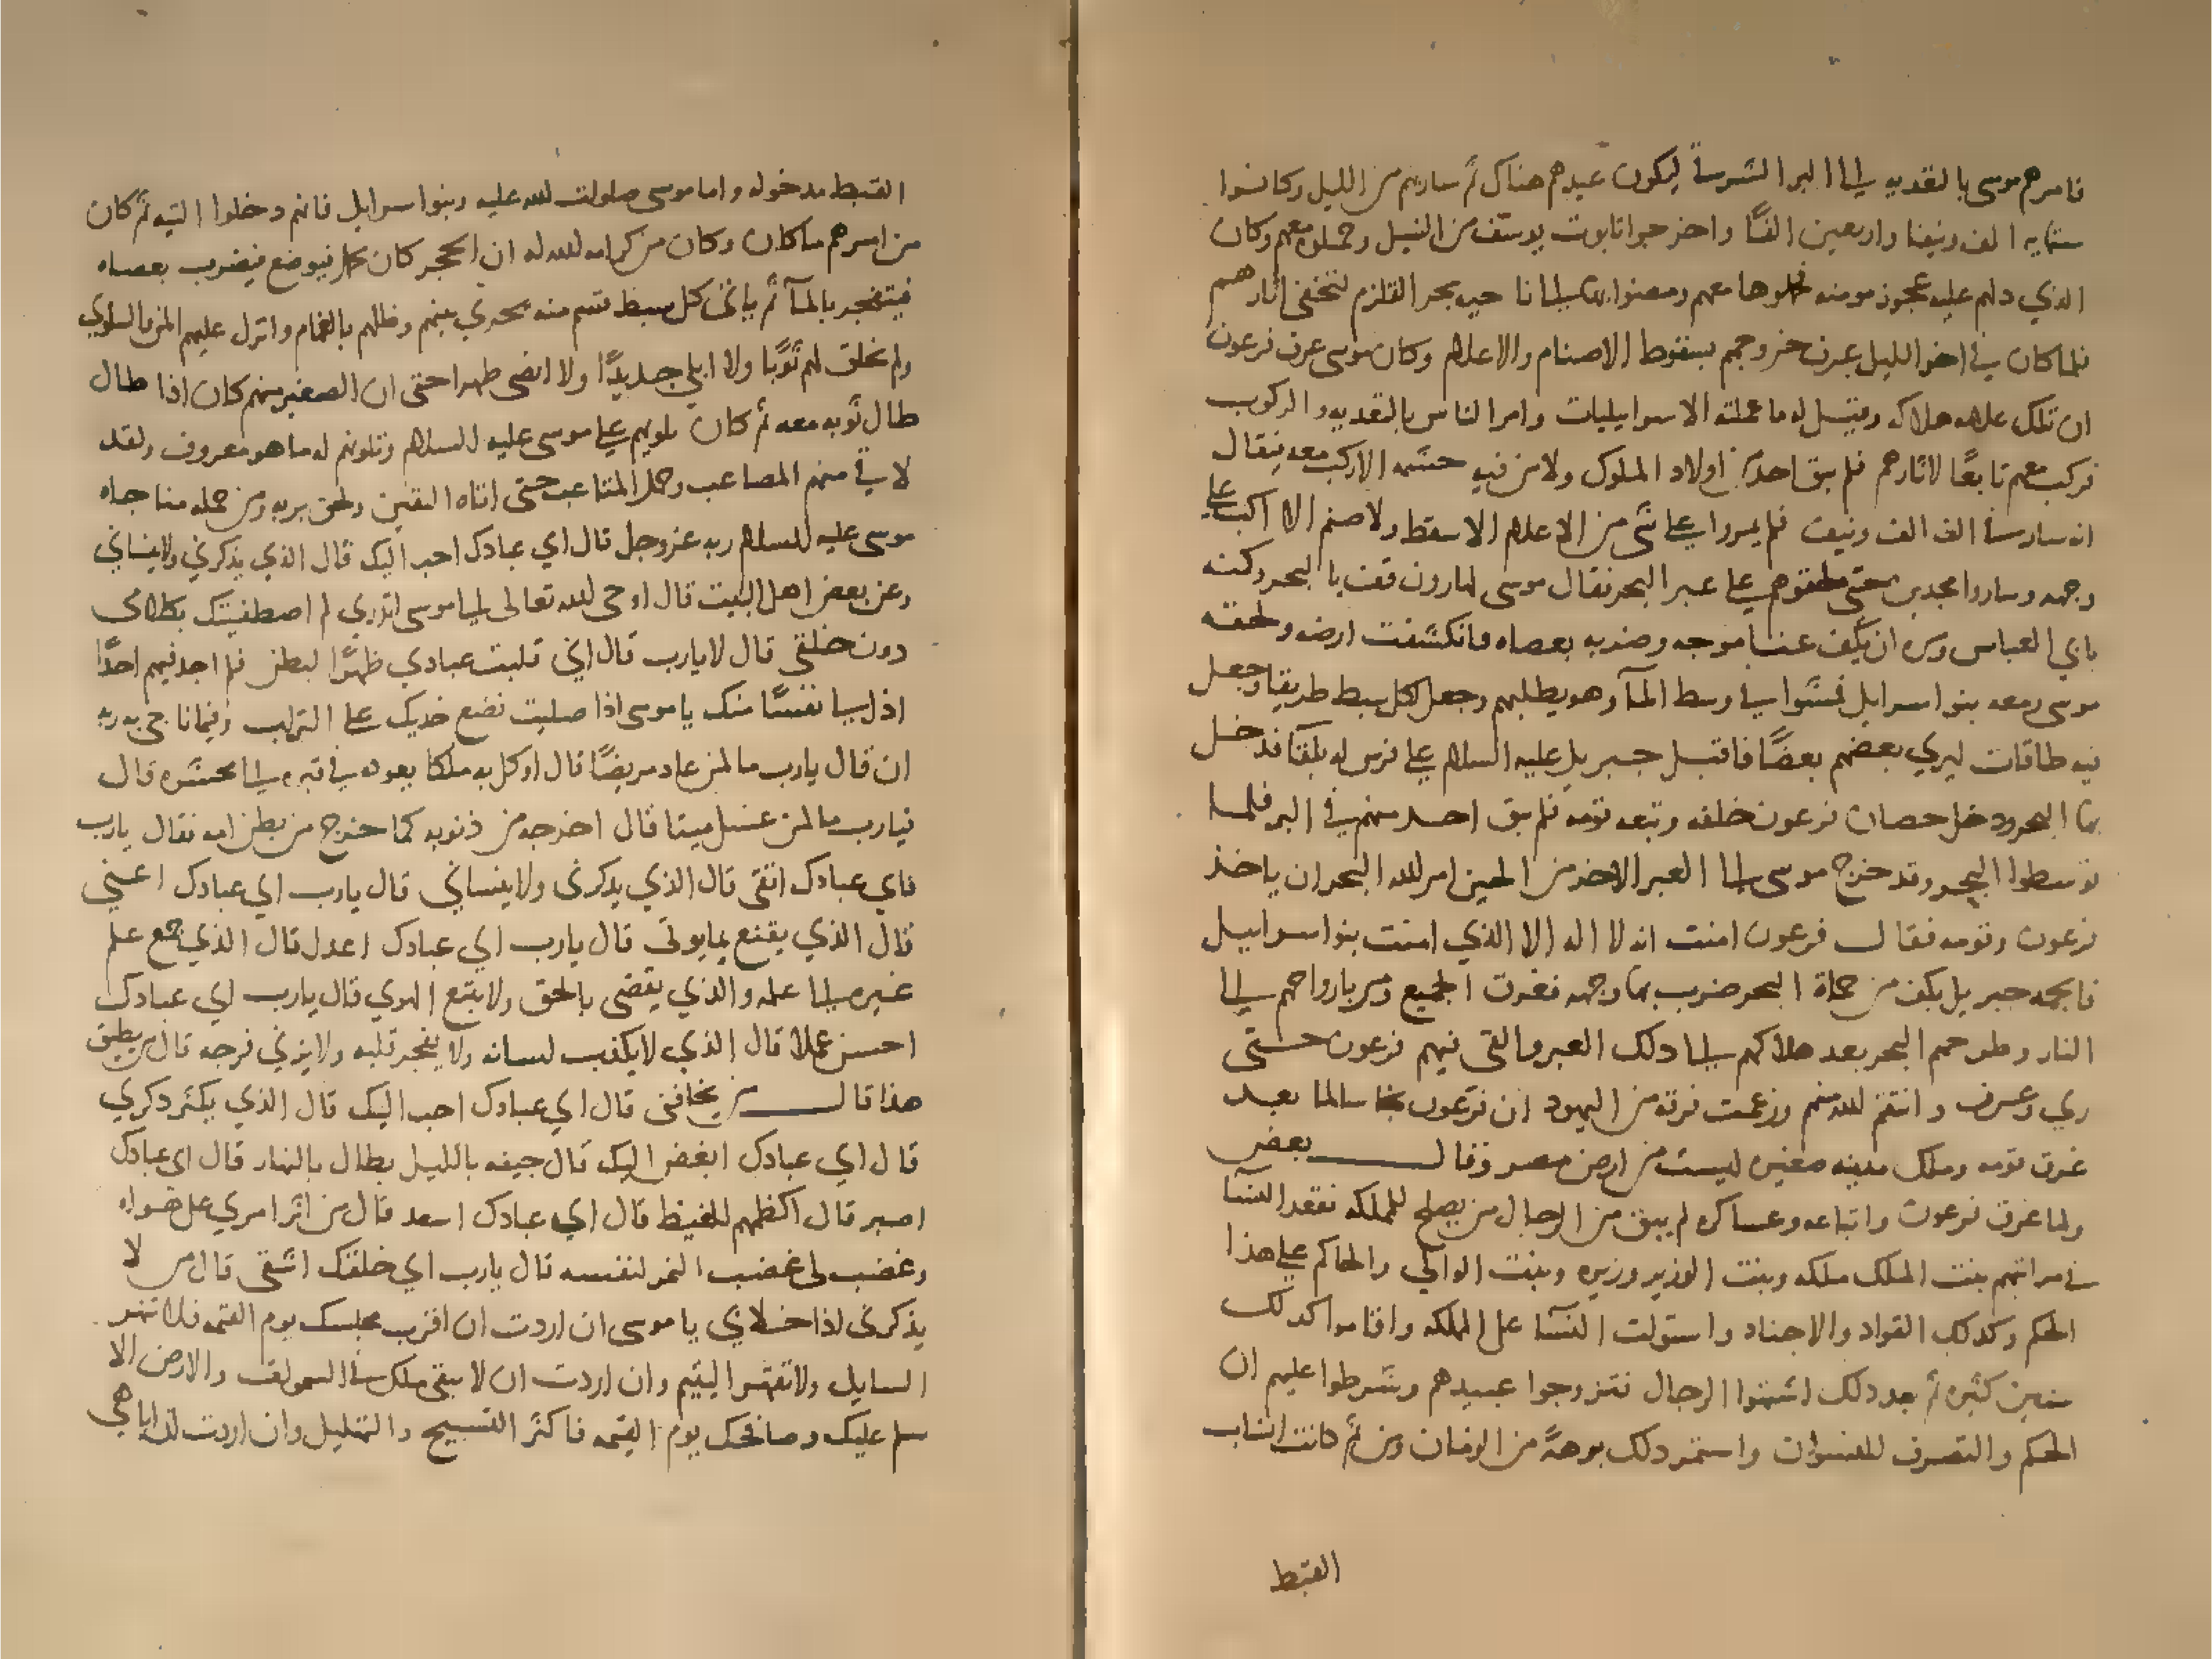 فامرهم موسى بالتعديه الى البر الشرسا ليكون عيدهم هناك ثم سار بهم من الليل وكانوا
ستمايه الف ونيفا واربعين الفًا واخرجوا تابوت يوسف من النيل وحملوه معهم وكان
الذي دلهم عليه عجوز مومنه فحملوها معهم ومضوا حيه بحر القلزم لتختفي اثارهم
فلما كان في اخر الليل عرف خروجهم بسقوط الاصنام والاعلام وكان موسى عرف فرعون
ان تلك علامه هلاكه وقيل له ما عملته الاسرايليات وامر الناس بالتعديه والركوب
فركب معهم تابعًا لاثارهم فلم يبق احد من اولاد الملوك ولا من فيه حشمه الا ركب معه فيقال
انه سار الف الف ونيف فلم يمروا على شى من الاعلام الا سقط ولا صنم الا اكب على
وجهه وساروا مجدين حتى لحقوهم على عبر البحر فقال موسى لهارون قف بالبحر وكنه
بابي العباس ومره ان يكف عنا موجه وضربه بعصاه فانكشفت ارضه ولحقه
موسى ومعه بنوا اسرايل فمشوا في وسط المآ وهو يطلبهم وجعل لكل سبط طريقا وجعل
فيه طاقات ليرى بعضهم بعضًا فاقبل جبريل عليه السلام على فرس له بلقا فدخل
بها البحر ودخل حصان فرعون خلفه وتبعه قومه فلم يبق احد منهم في البر فلما
توسطوا البحر وقد خرج موسى الى العبر الاخر من الحين امر الله البحر ان ياخذ
فرعون وقومه فقال فرعون امنت انه لا اله الا الذي امنت بنوا اسراييل
فالجمه جبريل بكف من حماة البحر ضرب بها وجهه فغرق الجميع ومر بارواحهم الى
النار وطرحهم البحر بعد هلاكهم الى ذلك العبر والقى فيهم فرعون حتى
رى وعرف وانتقم الله منهم وزعمت فرقه من اليهود ان فرعون نجا سالما بعد
غرق قومه وملك مدينه صغيره ليست من ارض مصر وقال بعض
ولما غرق فرعون واتباعه وعساكره لم يبق من الرجال من يصلح للمملكه فقعد النسآ
في مراتبهم بنت الملك ملكه وبنت الوزير وزيره وبنت الوالي والحاكم على هذا
الحكم وكذلك القواد والاجناد واستولت النسآ على المملكه واقاموا كذلك
سنين كثيره ثم بعد ذلك اشتهوا الرجال فتزوجوا عبيدهم وشرطوا عليهم ان
الحكم والتصرف للنسوان واستمر ذلك برهةً من الزمان ومن ثم كانت انساب
القبط
القبط مدخوله واما موسى صلوات الله عليه وبنوا اسرايل فانهم دخلوا التيه ثم كان
من امرهم ما كان وكان من كرامه الله له ان الحجر كان فيوضع فيضرب بعصاه
فيتفجر بالمآ ثم ياتى كل سبط قسم منه يجري بينهم وظللهم بالغمام وانزل عليهم المن والسلوي
ولم يخلق لهم ثوبًا ولا ابلى جديدًا ولا انضى ظهرا حتى ان الصغير منهم كان اذا طال
طال ثوبه معه ثم كان تلونهم على موسى عليه السلام وتلونهم له ما هو معروف ولقد
لاقي منهم المصاعب وحمل المتاعب حتى اتاه اليقين ولحق بربه ومن جمله مناجاه
موسى عليه السلام ربه عز وجل قال اي عبادك احب اليك قال الذي يذكرني ولا ينساني
وعن بعض اهل البيت قال اوحى الله تعالى الى موسى اتدري لم اصطفيتك بكلامي
دون خلقي قال لا يارب قال اني قلبت عبادي ظهرًا لبطن فلم اجد فيهم احدًا
اذل لي نفسًا منك يا موسى اذا صليت تضع خديك على التراب وفيما ناجى به ربه
ان قال يارب ما لمن عاد مريضًا قال اوكل به ملكا يعوده في قبره الى محشره قال
فيارب ما لمن غسل ميتا قال اخرجه من ذنوبه كما خرج من بطن امه فقال يارب
فاي عبادك اتقى قال الذي يذكرني ولا ينساني قال يارب اي عبادك اغني
قال الذي يقنع بما يوتى قال يارب اي عبادك اعدل قال الذي يجمع علم
غيره الى علمه والذي يقضى بالحق ولا يتبع الهوي قال يارب اي عبادك
احسن عملا قال الذي لا يكذب لسانه ولا يفجر قلبه ولا يزني فرجه قال من يطيق
هذا قال من يخافنى قال اي عبادك احب اليك قال الذي يكثر ذكري
قال اي عبادك ابغض اليك قال جيفه بالليل بطال بالنهار قال اى عبادك
اصبر قال اكظمهم للغيظ قال اي عبادك اسعد قال من اثر امري على هواه
وغضب لى غضب النمر لنفسه قال يارب اي خلقك اشقى قال من لا
يذكرنى اذا خلا بي يا موسى ان اردت ان اقرب مجلسك يوم القيمه فلا تنهر
السايل ولا تقهر اليتيم وان اردت ان لا يبقى ملك في السموات والارض الا
سلم عليك وصافحك يوم القيمه فاكثر التسبيح والتهليل وان اردت ان اباهي